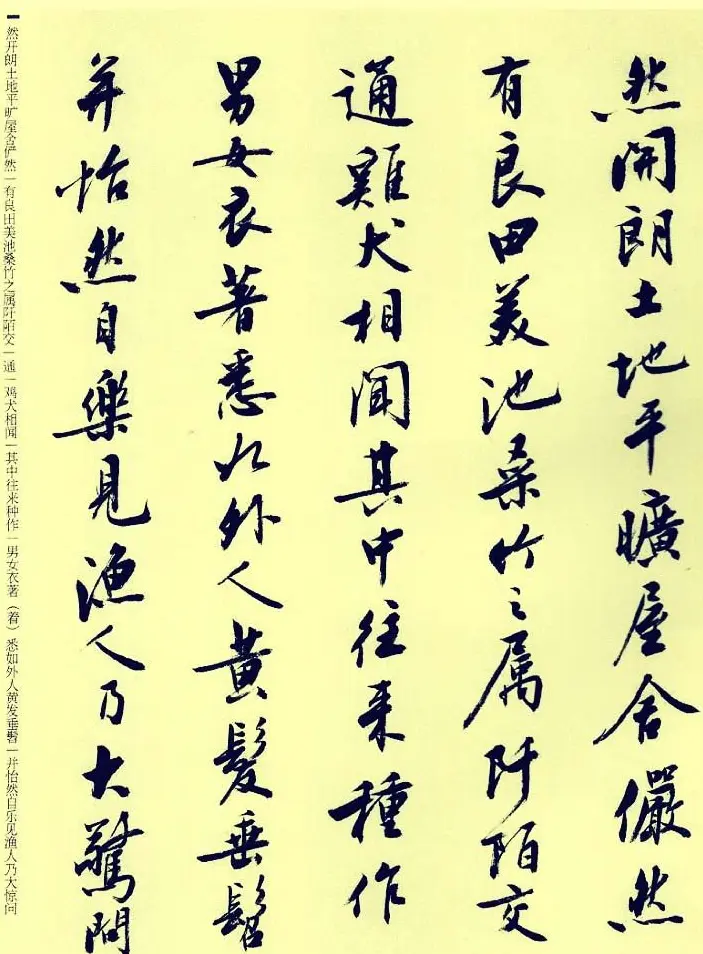 然開朗土地平曠屋舍儼然
有良田美池桑竹之属阡陌交
通雞犬相聞其中往来種作
男女衣著悉如外人黄髮垂髫
并怡然自樂見漁人乃大驚問
然开朗土地平旷屋舍俨然|有良田美池桑竹之属阡陌交|通|鸡犬相闻|其中往来种作|男女衣著（着）悉如外人黄发垂髫|并怡然自乐见渔人乃大惊问